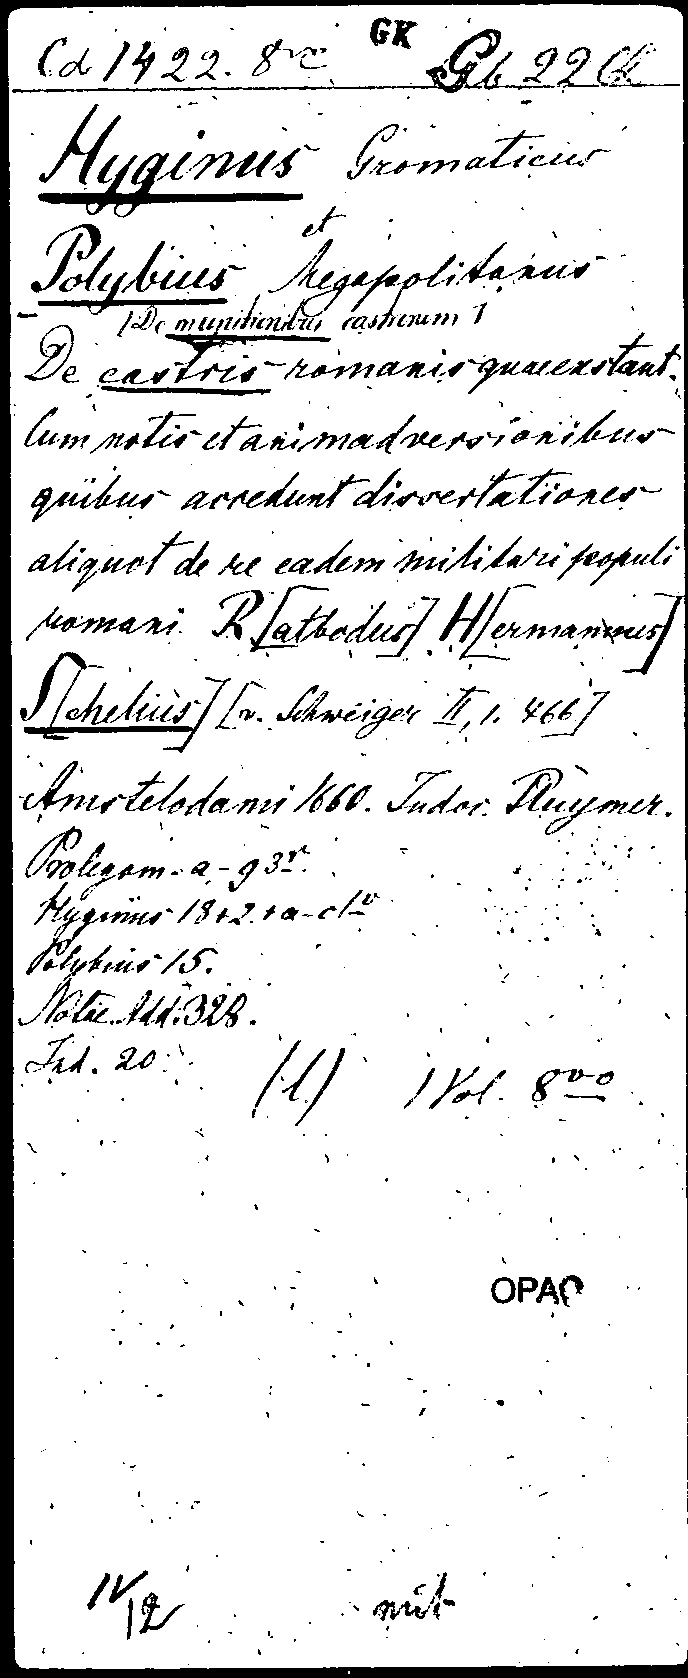 Cd 1422. 8vo GK Gb 22
Hyginus Gromaticus
et
Polybius Megapolitanus
/De munitionibus castrorum/
De castris romanis quae exstant.
Cum notis et animadversionibus
quibus accedunt dissertationes
aliquot de re eadem militari populi
romani R[atbodus] H[ermannus]
S[chelius] [v. Schweiger II, 1. 466]
Amstelodami 1660. Judoc. Pluymer.
Prolegom. a - g 3r.
Hyginus 18+2.+a-c1v
Polybius 15.
Notae. Add. 328.
Ind. 20
(1.) 1 Vol. 8vo
OPAC
IV/12 mit